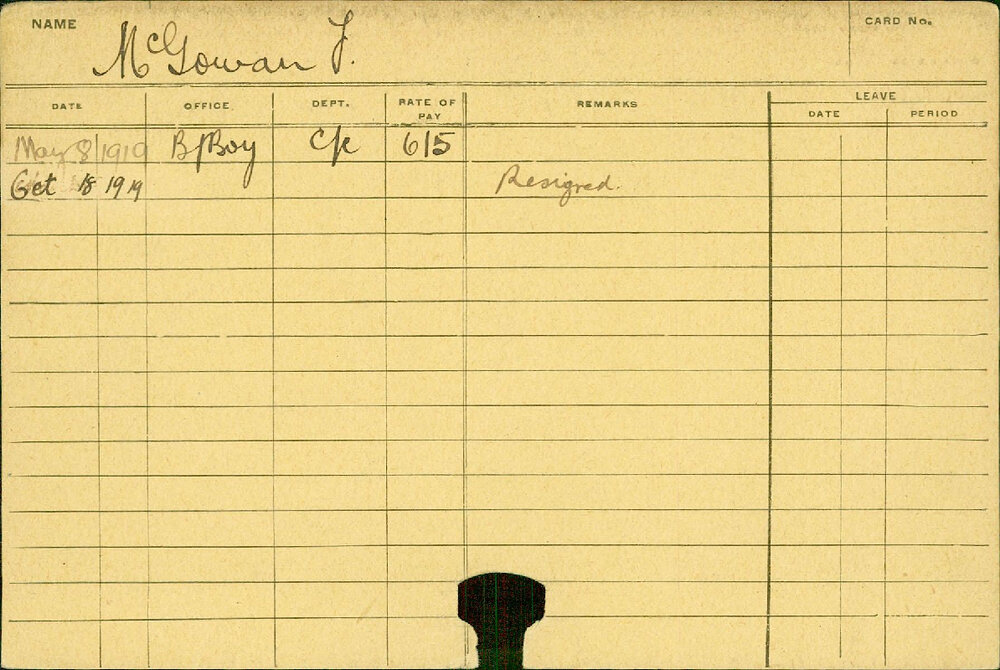 NAME McGowan J. CARD No.
DATE OFFICE DEPT. RATE OF PAY REMARKS LEAVE
DATE PERIOD
May 8 1919 B/Boy C/k 6/5
Oct 18 1919 Resigned.